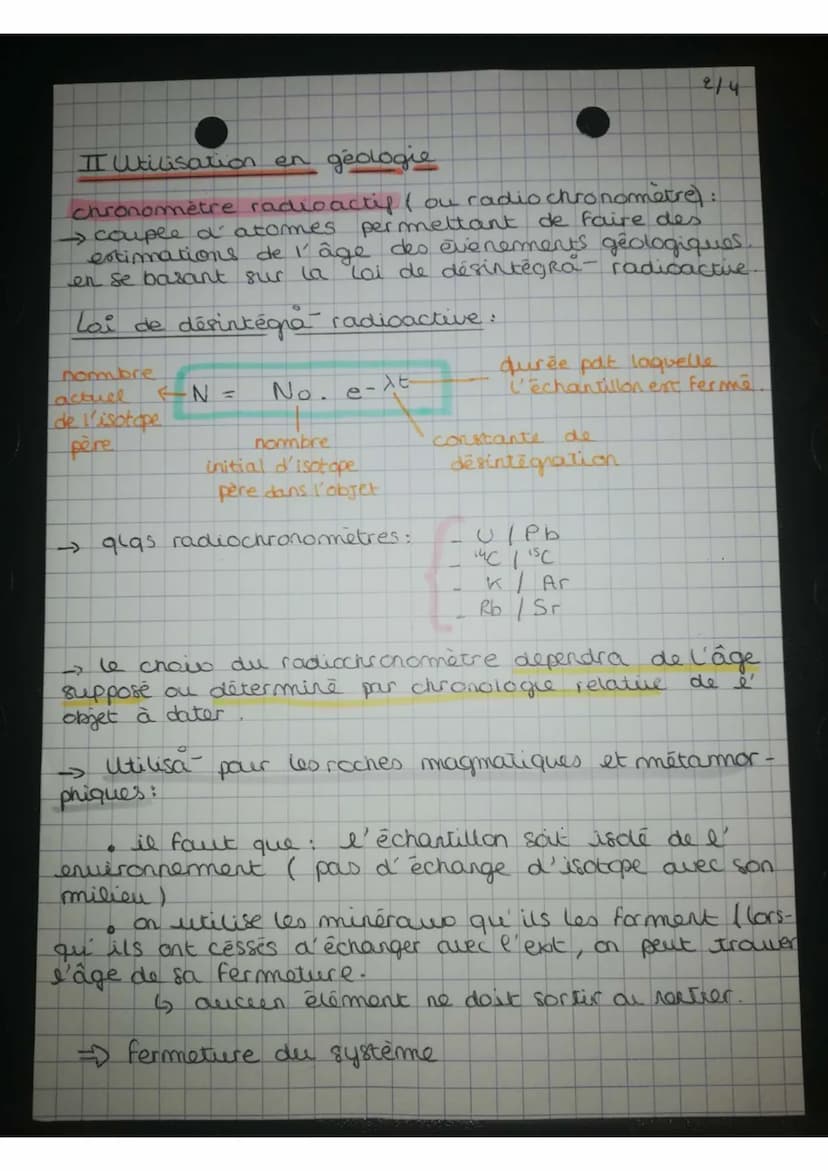 2/4
II Utilisation en géologie
chronomètre radioactif ( ou radiochronomètre) :
→ couple d'atomes permettant de faire des
estimations de l'âge des évènements géologiques
en se basant sur la loi de désintégrå- radioactive.
Loi de désintégrå- radioactive :
nombre actuel de l'isotope père
N = No. e-λt
durée pdt laquelle l'échantillon est fermé.
nombre initial d'isotope père dans l'objet
constante de désintégration
→ qlqs radiochronomètres :
- U / Pb
- ¹⁴C / ¹⁵C
- K / Ar
- Rb / Sr
→ le choix du radiochronomètre dependra de l'âge
supposé ou déterminé par chronologie relative de l'
objet à dater.
→ Utiliså- pour les roches magmatiques et métamor-
phiques :
• il faut que : l'échantillon soit isolé de l'
environnement ( pas d'échange d'isotope avec son
milieu )
• on utilise les minéraux qu'ils les forment (lors-
qu'ils ont cessés d'échanger avec l'ext, on peut trouver
l'âge de sa fermeture.
↳ aucun élément ne doit sortir ou rentrer.
⇒ fermeture du système